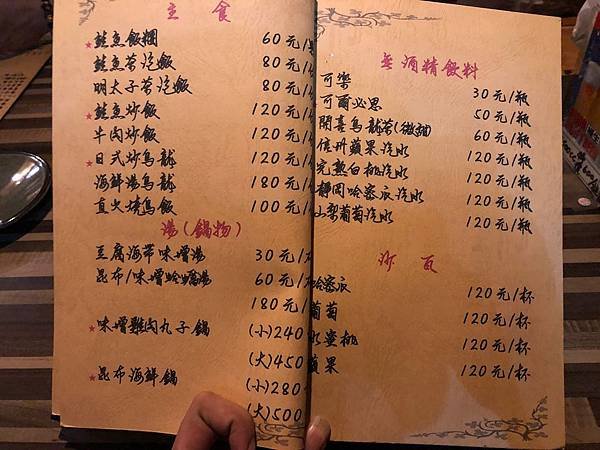 主食
★鮭魚飯糰 60元/
鮭魚茶泡飯 80元/
明太子茶泡飯 80元/
★鮭魚炒飯 120元/
牛肉炒飯 120元/
★日式炒烏龍 120元/
海鮮湯烏龍 180元/
直火燒烏飯 100元/
湯(鍋物)
豆腐海帶味增湯 30元/
昆布/味增蛤蠣湯 60元/
180元/
★味增雞肉丸子鍋 (小)240
(大)450
★昆布海鮮鍋 (小)280
(大)500
無酒精飲料
可樂 30元/瓶
可爾必思 50元/瓶
開喜烏龍茶(微甜) 60元/瓶
信州蘋果汽水 120元/瓶
完熟白桃汽水 120元/瓶
靜岡哈密瓜汽水 120元/瓶
山梨葡萄汽水 120元/瓶
沙瓦
哈密瓜 120元/杯
葡萄 120元/杯
水蜜桃 120元/杯
蘋果 120元/杯